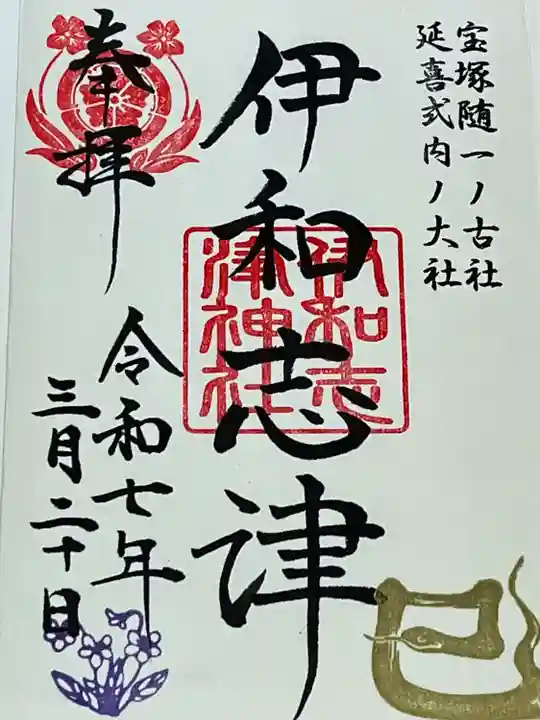 宝塚随一ノ古社
延喜式内ノ大社
伊和志津
伊和志
津神社
奉拝
令和七年
三月二十日
巳